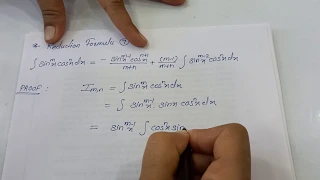 * Reduction Formula ⑦
∫ sin^m x cos^n x dx = - sin^{m-1}x cos^{n+1}x / m+n + (m-1)/m+n ∫ sin^{m-2}x cos^n x dx
PROOF : I_{m,n} = ∫ sin^m x cos^n x dx
= ∫ sin^{m-1}x sinx cos^n x dx
= sin^{m-1}x ∫ cos^n x sin